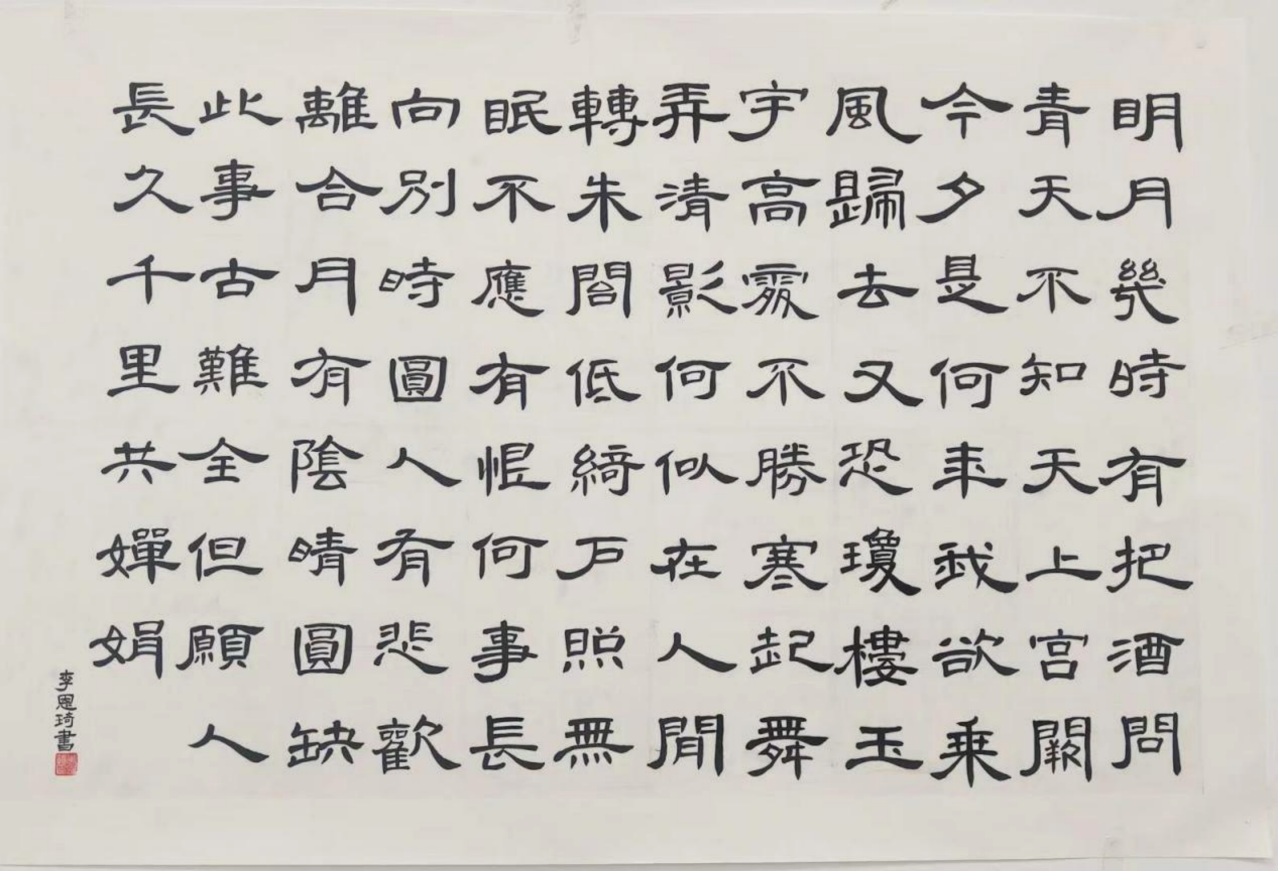 明月幾時有把酒問
青天不知天上宮闕
今夕是何年我欲乘
風歸去又恐瓊樓玉
宇高處不勝寒起舞
弄清影何似在人間
轉朱閣低綺戶照無
眠不應有恨何事長
向別時圓人有悲歡
離合月有陰晴圓缺
此事古難全但願人
長久千里共嬋娟
李恩琦書